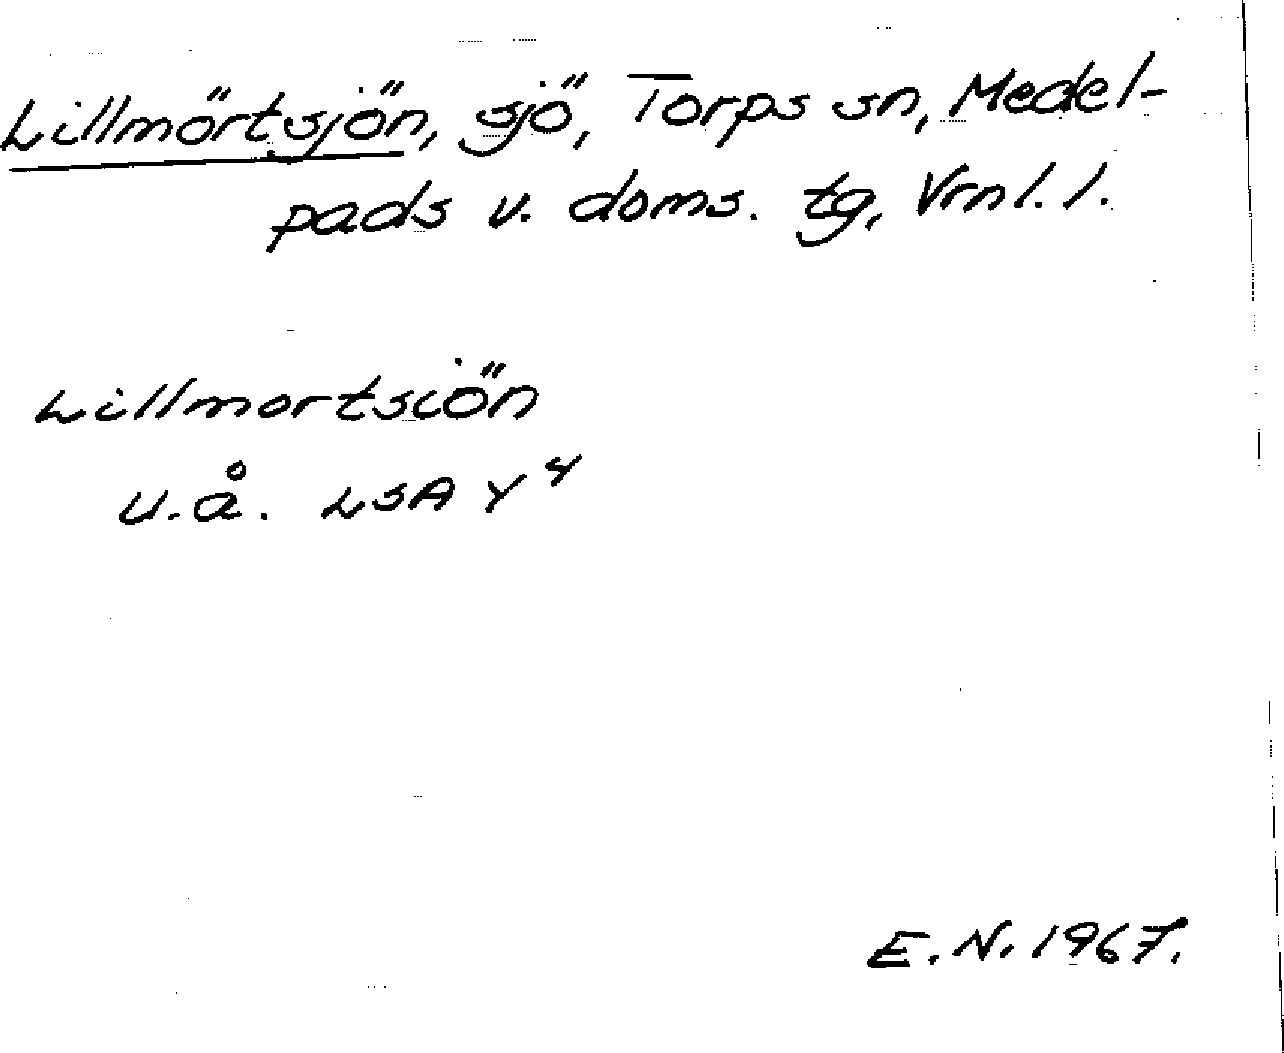 Lillmörtsjön, sjö, Torps sn, Medel-
pads v. doms. tg, Vrnl. l.
Lillmortsiön
U.å. LSA Y 4
E.N. 1967.